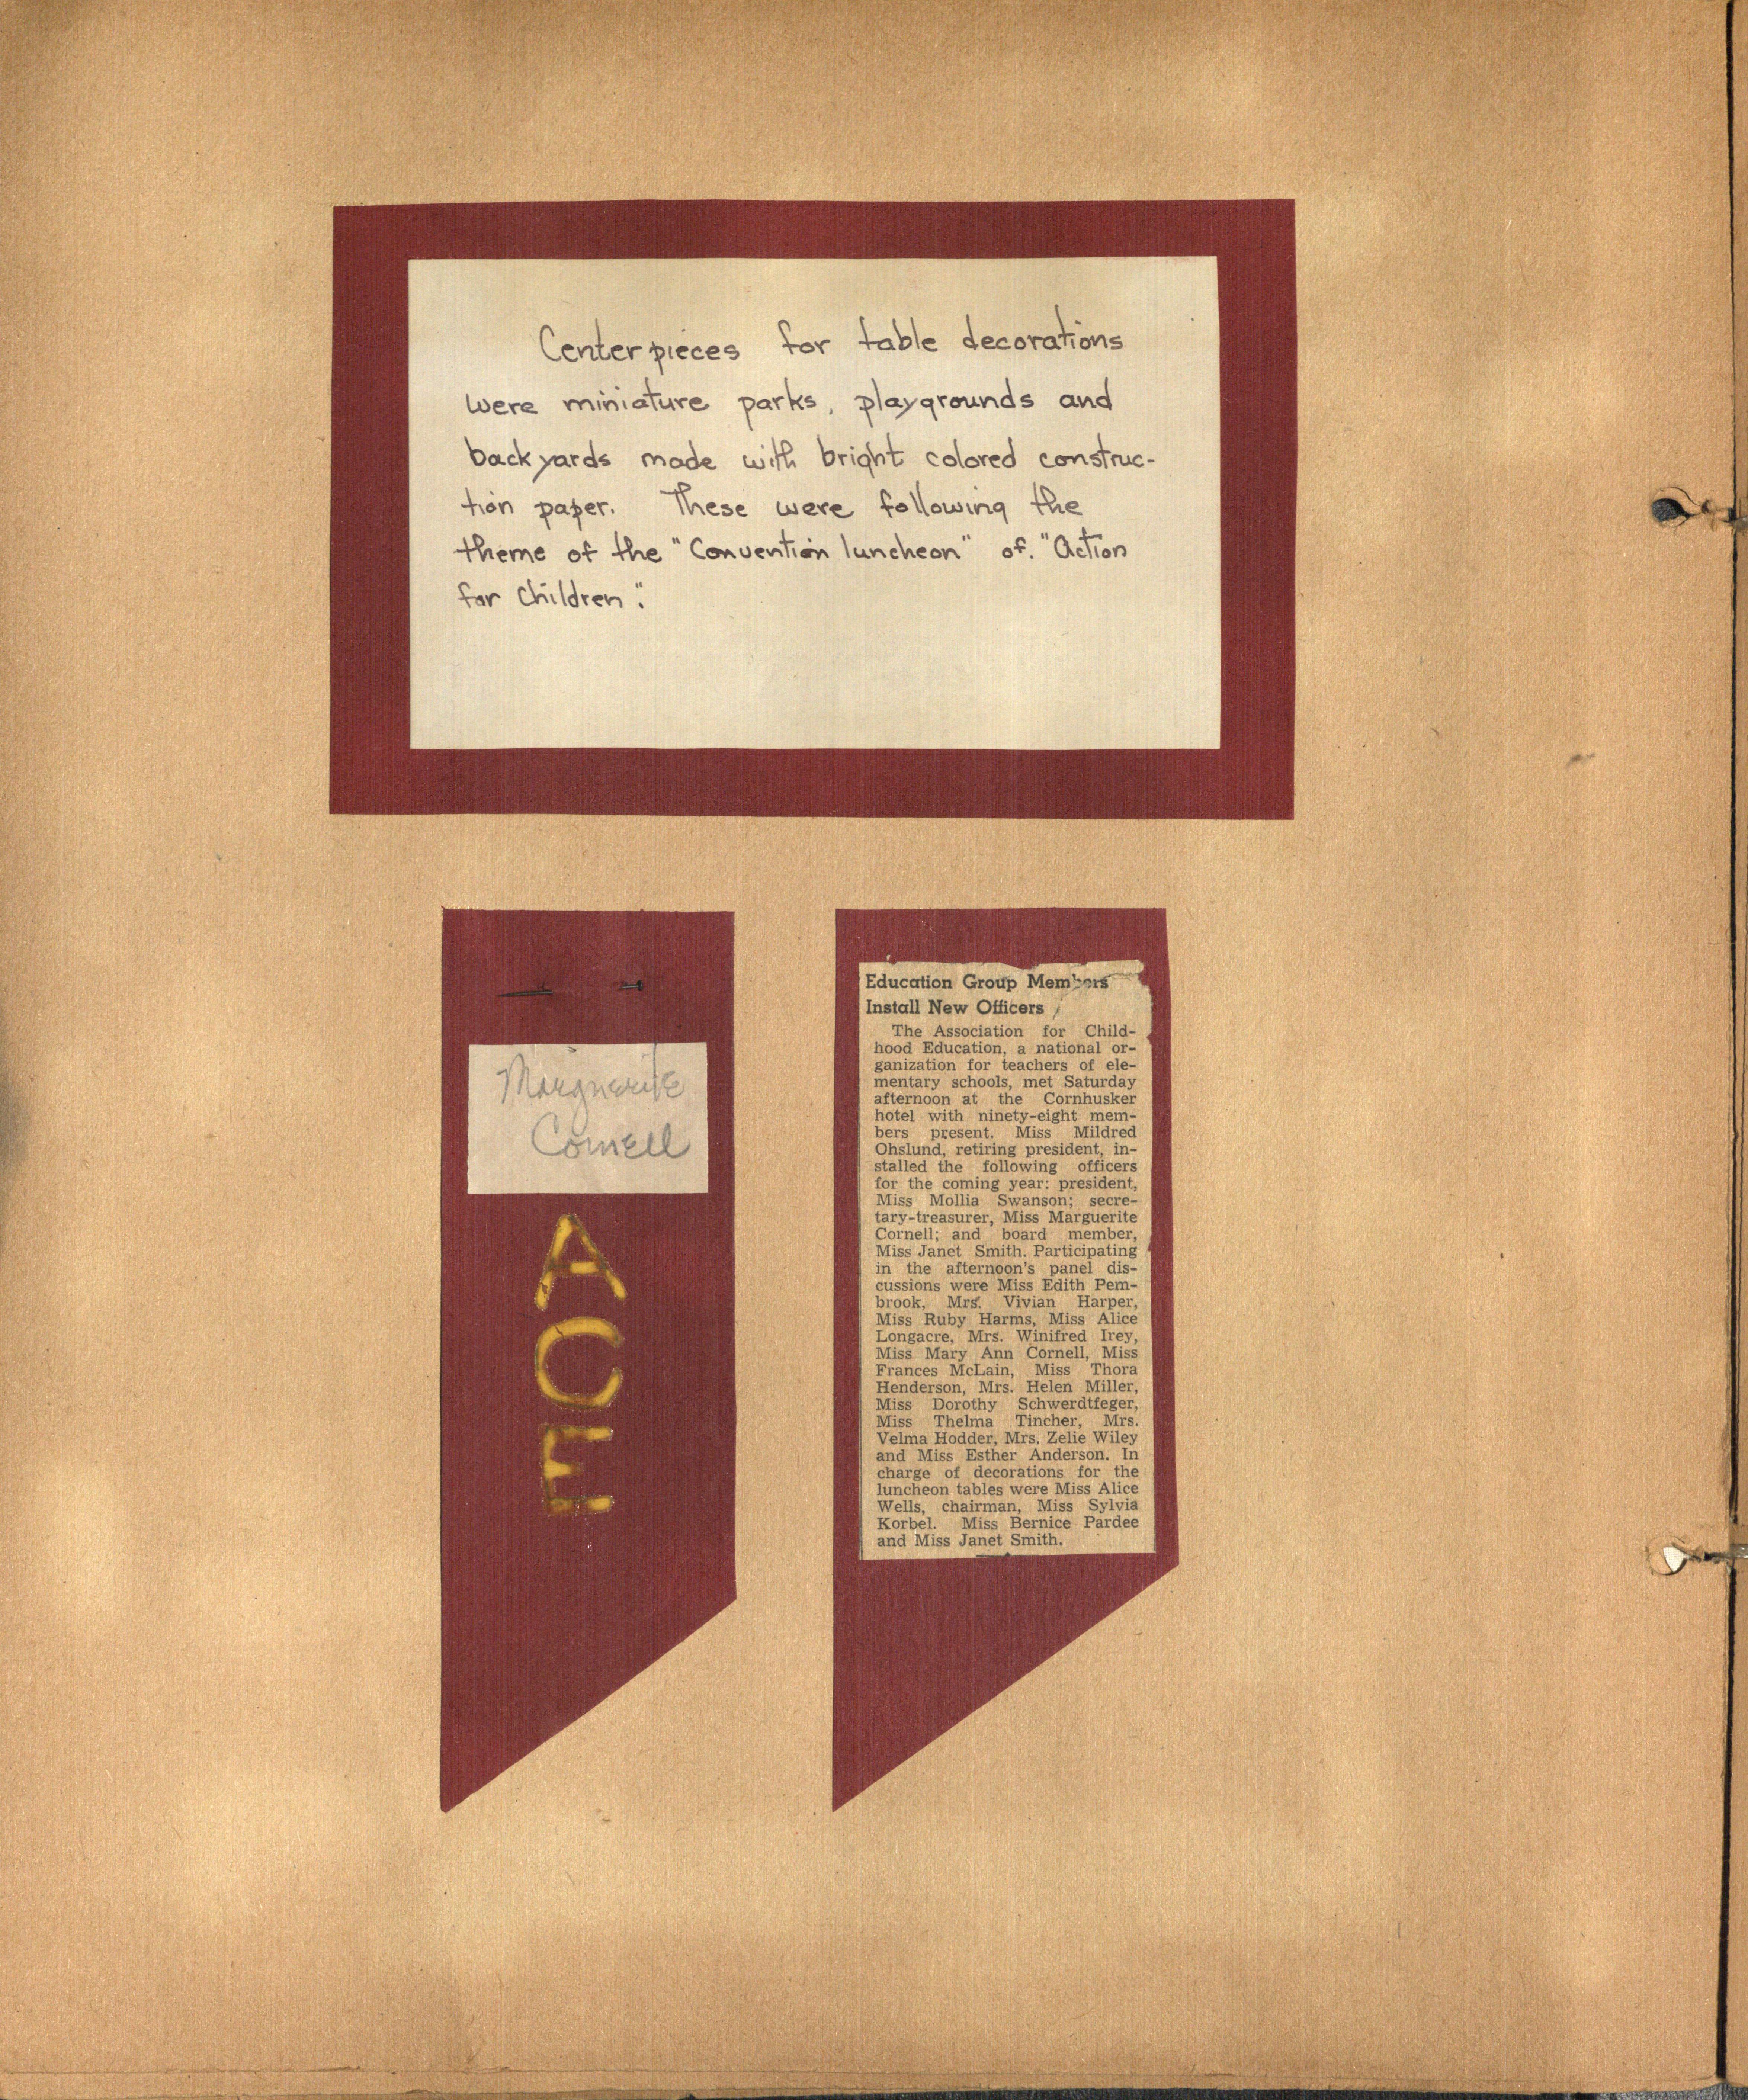 Centerpieces for table decorations
were miniature parks, playgrounds and
backyards made with bright colored construc-
tion paper. These were following the
theme of the "Convention luncheon" of. "Action
for Children".
Marguerite
Cornell
A
C
E
Education Group Members
Install New Officers
The Association for Child-
hood Education, a national or-
ganization for teachers of ele-
mentary schools, met Saturday
afternoon at the Cornhusker
hotel with ninety-eight mem-
bers present. Miss Mildred
Ohslund, retiring president, in-
stalled the following officers
for the coming year: president,
Miss Mollia Swanson; secre-
tary-treasurer, Miss Marguerite
Cornell; and board member,
Miss Janet Smith. Participating
in the afternoon's panel dis-
cussions were Miss Edith Pem-
brook, Mrs. Vivian Harper,
Miss Ruby Harms, Miss Alice
Longacre, Mrs. Winifred Irey,
Miss Mary Ann Cornell, Miss
Frances McLain, Miss Thora
Henderson, Mrs. Helen Miller,
Miss Dorothy Schwerdtfeger,
Miss Thelma Tincher, Mrs.
Velma Hodder, Mrs. Zelie Wiley
and Miss Esther Anderson. In
charge of decorations for the
luncheon tables were Miss Alice
Wells, chairman, Miss Sylvia
Korbel. Miss Bernice Pardee
and Miss Janet Smith.